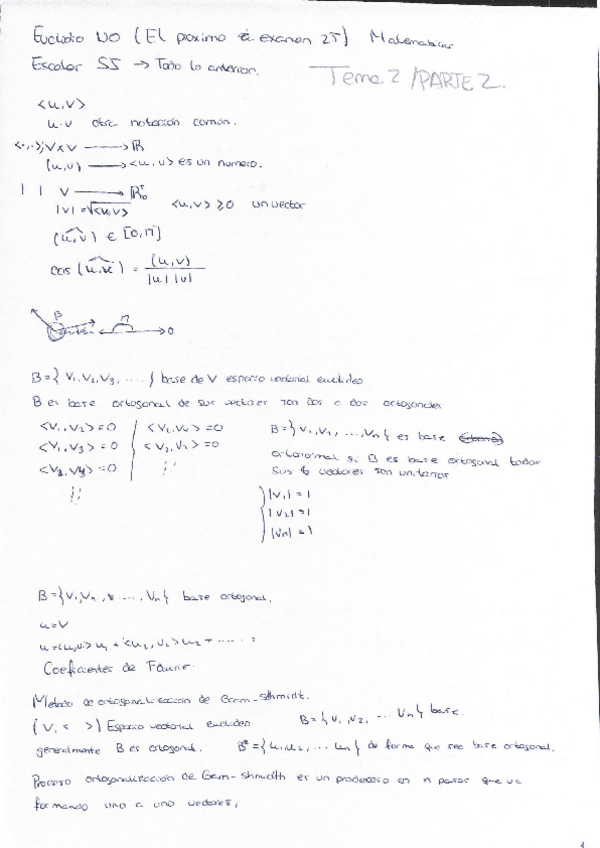 Euclidio NO (El proximo examen 2T) Matematicas
Escalar SI → Todo lo anterior.
Tema 2 / PARTE 2.
<u,v>
u·v otra notación común.
<·,·>; V×V → ℝ
(u,v) → <u,v> es un numero.
| | V → ℝ₀⁺
|v| = √<v,v> <u,v> ≥ 0 un vector
(u,v) ∈ [0,π]
cos (u,v) = (u,v) / |u| |v|
β π 0
B = { v₁, v₂, v₃, .... } base de V espacio vectorial euclideo
B es base ortogonal de sus vectores son dos a dos ortogonales
<v₁, v₂> = 0 <v₂, v₄> = 0
<v₁, v₃> = 0 <v₂, v₃> = 0
<v₃, v₄> = 0
B = { v₁, v₂, ..., vₙ } es base
ortonormal si B es base ortogonal todos
sus vectores son unitarios
|v₁| = 1
|v₂| = 1
|vₙ| = 1
B = { v₁, vₙ, .... vₙ } base ortogonal.
u = V
u = <u,u> u₁ + <u₂, u₂> u₂ + .....
Coeficientes de Fourie.
Metodo de ortogonalización de Gram-shmidt.
(V, < >) Espacio vectorial euclideo B = { v₁, v₂, ... vₙ } base.
generalmente B es ortogonal. B* = { u₁, u₂, ... uₙ } de forma que sea base ortogonal.
Proceso ortogonalización de Gram-shmidth es un proceso en n pasos que va
formando uno a uno vectores,